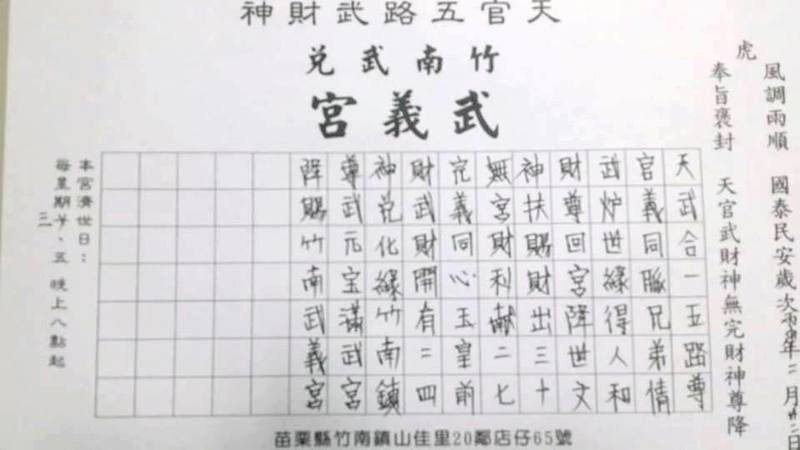 天官五路武財神
竹南武兌
武義宮
風調雨順 國泰民安歲次年二月廿二日
虎
奉旨褒封 天官武財神無完財神尊降
天武合一五路尊
官義同脈兄弟情
武炉世緣得人和
財尊回宮降世文
神扶賜財出三十
無宮財利献二七
完義同心玉皇前
財武財開有二四
神兌化緣竹南鎮
尊武元宝滿武宮
降賜竹南武義宮
本宮濟世日：
每星期三、五 晚上八點起
苗栗縣竹南鎮山佳里20鄰店仔65號